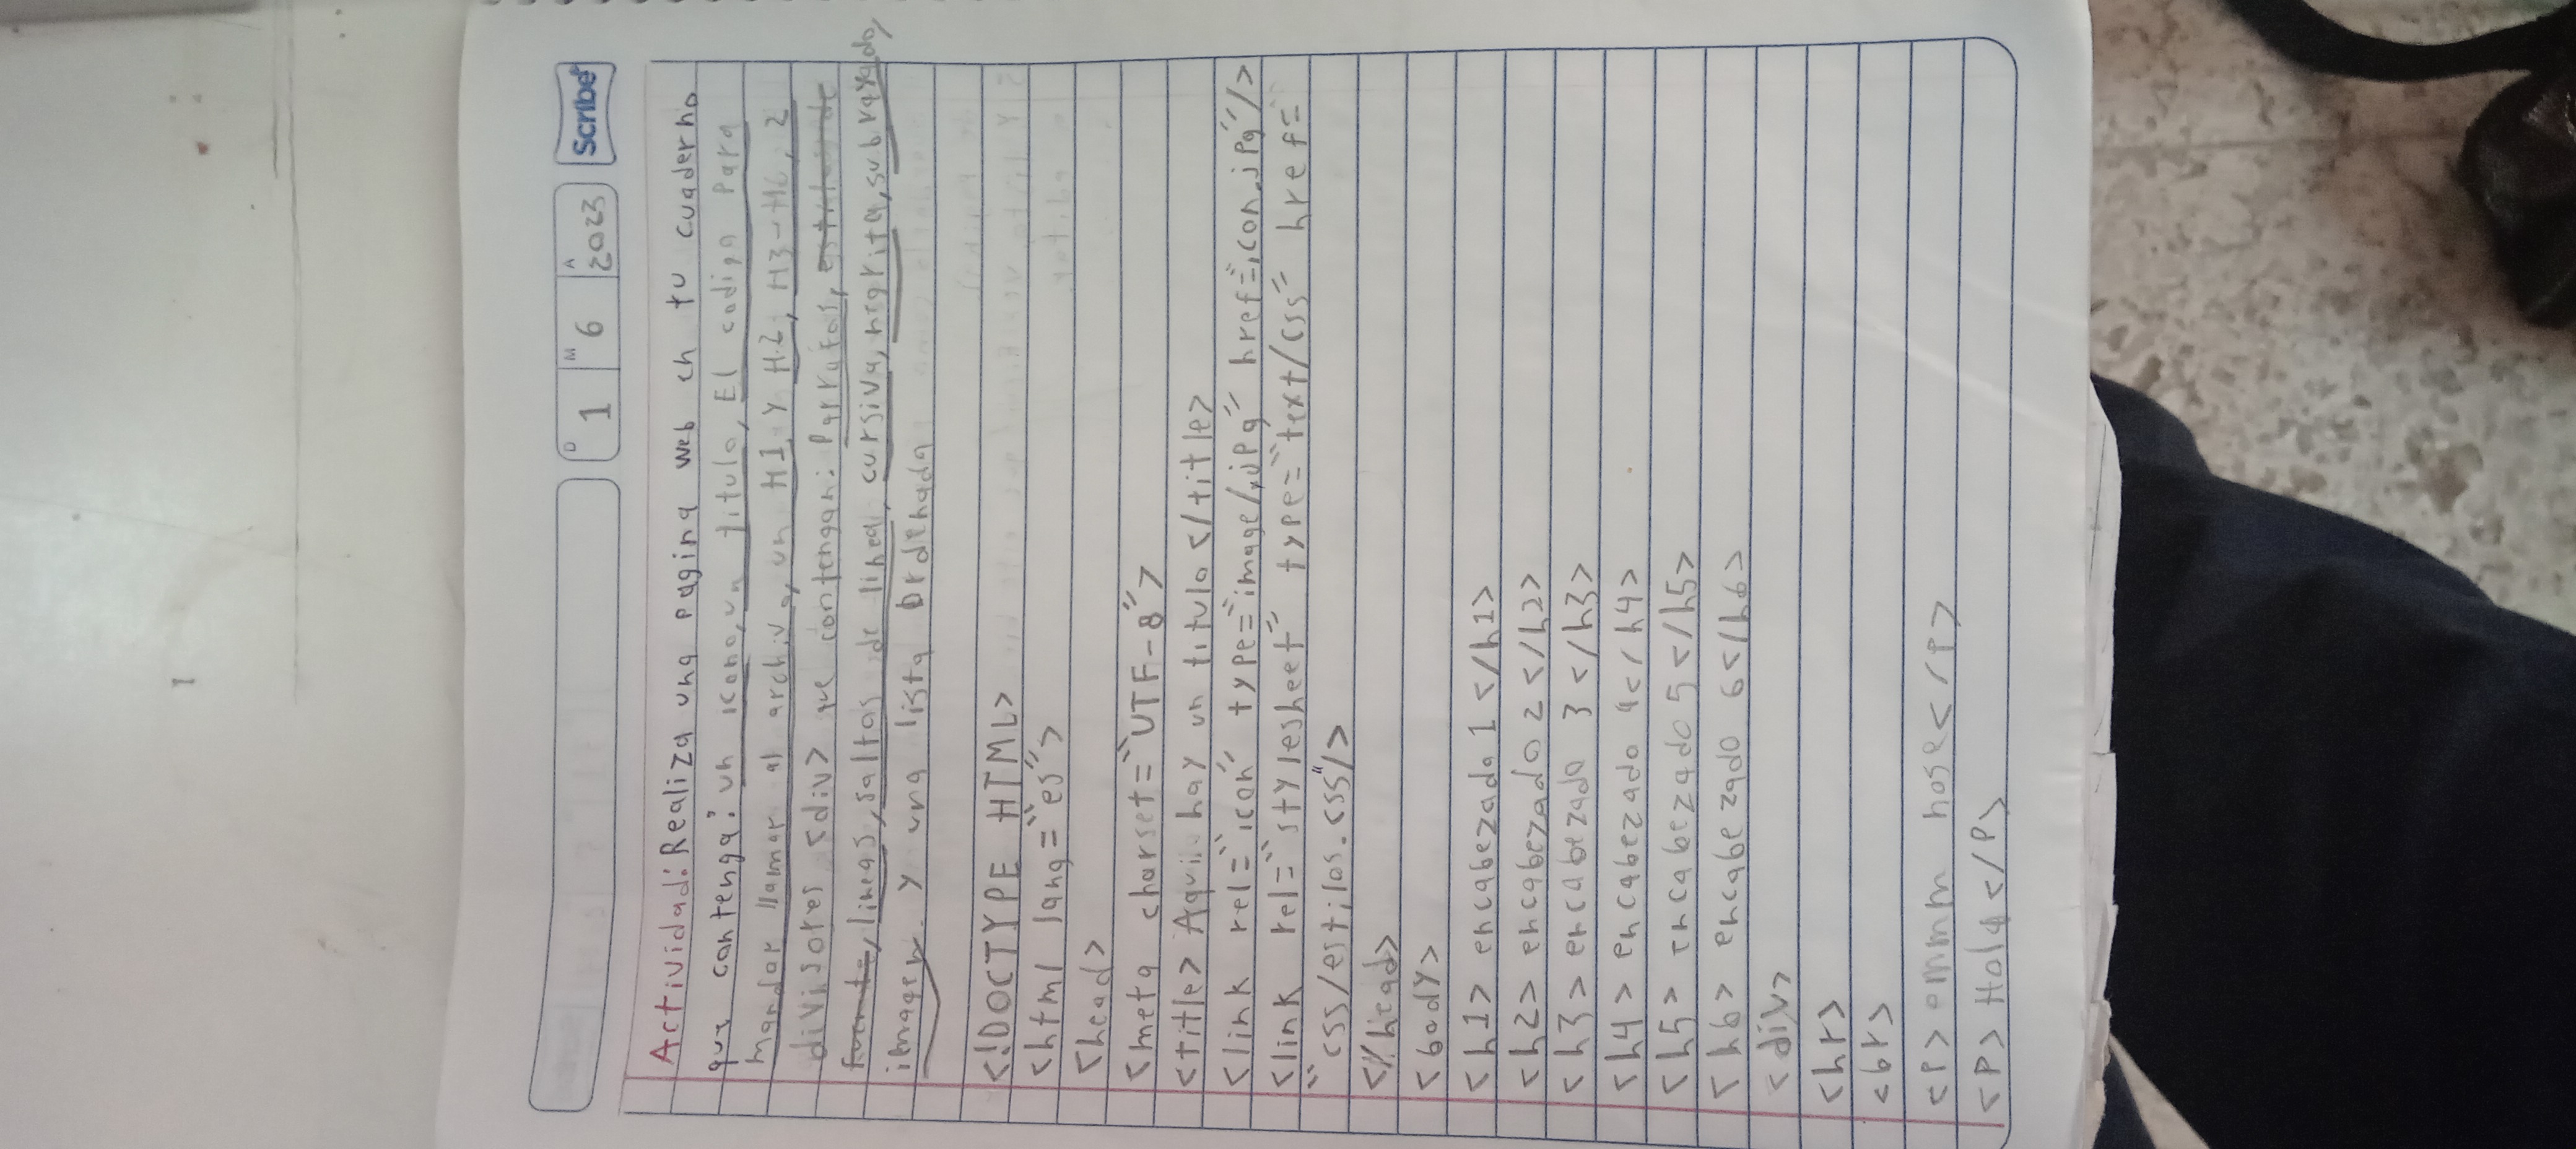 D 1 M 6 A 2023 Scribe
Actividad: Realiza una pagina web en tu cuaderno
que contenga: un icono, un titulo, El codigo Para
mandar llamar al archivo, un H1 Y H2, H3-H6, 2
divisores <div> que contengan: Parrafos, estilos de
fuente, lineas, saltos de linea, cursiva, negrita, subrayado,
imagen. Y una lista Ordenada
<!DOCTYPE HTML>
<html lang="es">
<head>
<meta charset="UTF-8">
<title> Aqui hay un titulo </title>
<link rel="icon" type="image/jpg" href="icon.jpg"/>
<link rel="stylesheet" type="text/css" href=
"css/estilos.css"/>
</head>
<body>
<h1> encabezado 1 </h1>
<h2> encabezado 2 </h2>
<h3> encabezado 3 </h3>
<h4> encabezado 4 </h4>
<h5> encabezado 5 </h5>
<h6> encabezado 6 </h6>
<div>
<hr>
<br>
<P> ommm nose </P>
<P> Hola </P>